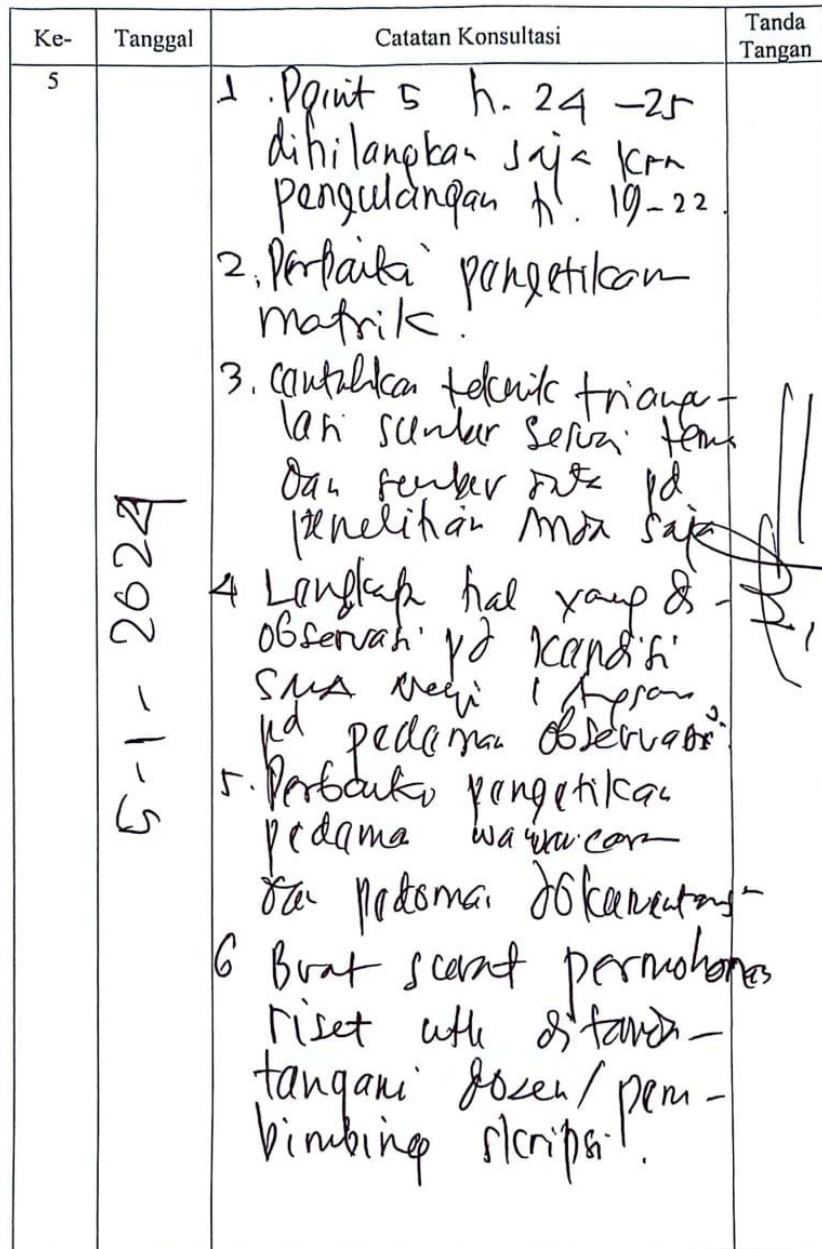 Ke- Tanggal Catatan Konsultasi Tanda Tangan
5
5-1-2024
1. Point 5 h. 24-25
dihilangkan saja krn
pengulangan h. 19-22.
2. Perbaiki pengetikan
matrik.
3. cantuhkan teknik triangu-
lasi sumber sesuai tema
dan sumber data pd
penelitian saja
4 Lengkapi hal yang di-
observasi pd kondisi
SMA Negeri 1
pd pedoman observasi.
5. Perbaiki pengetikan
pedoman wawancara
dan pedoman dokumentasi-
6 Buat surat permohonan
riset utk ditanda-
tangani dosen/pem-
bimbing skripsi.